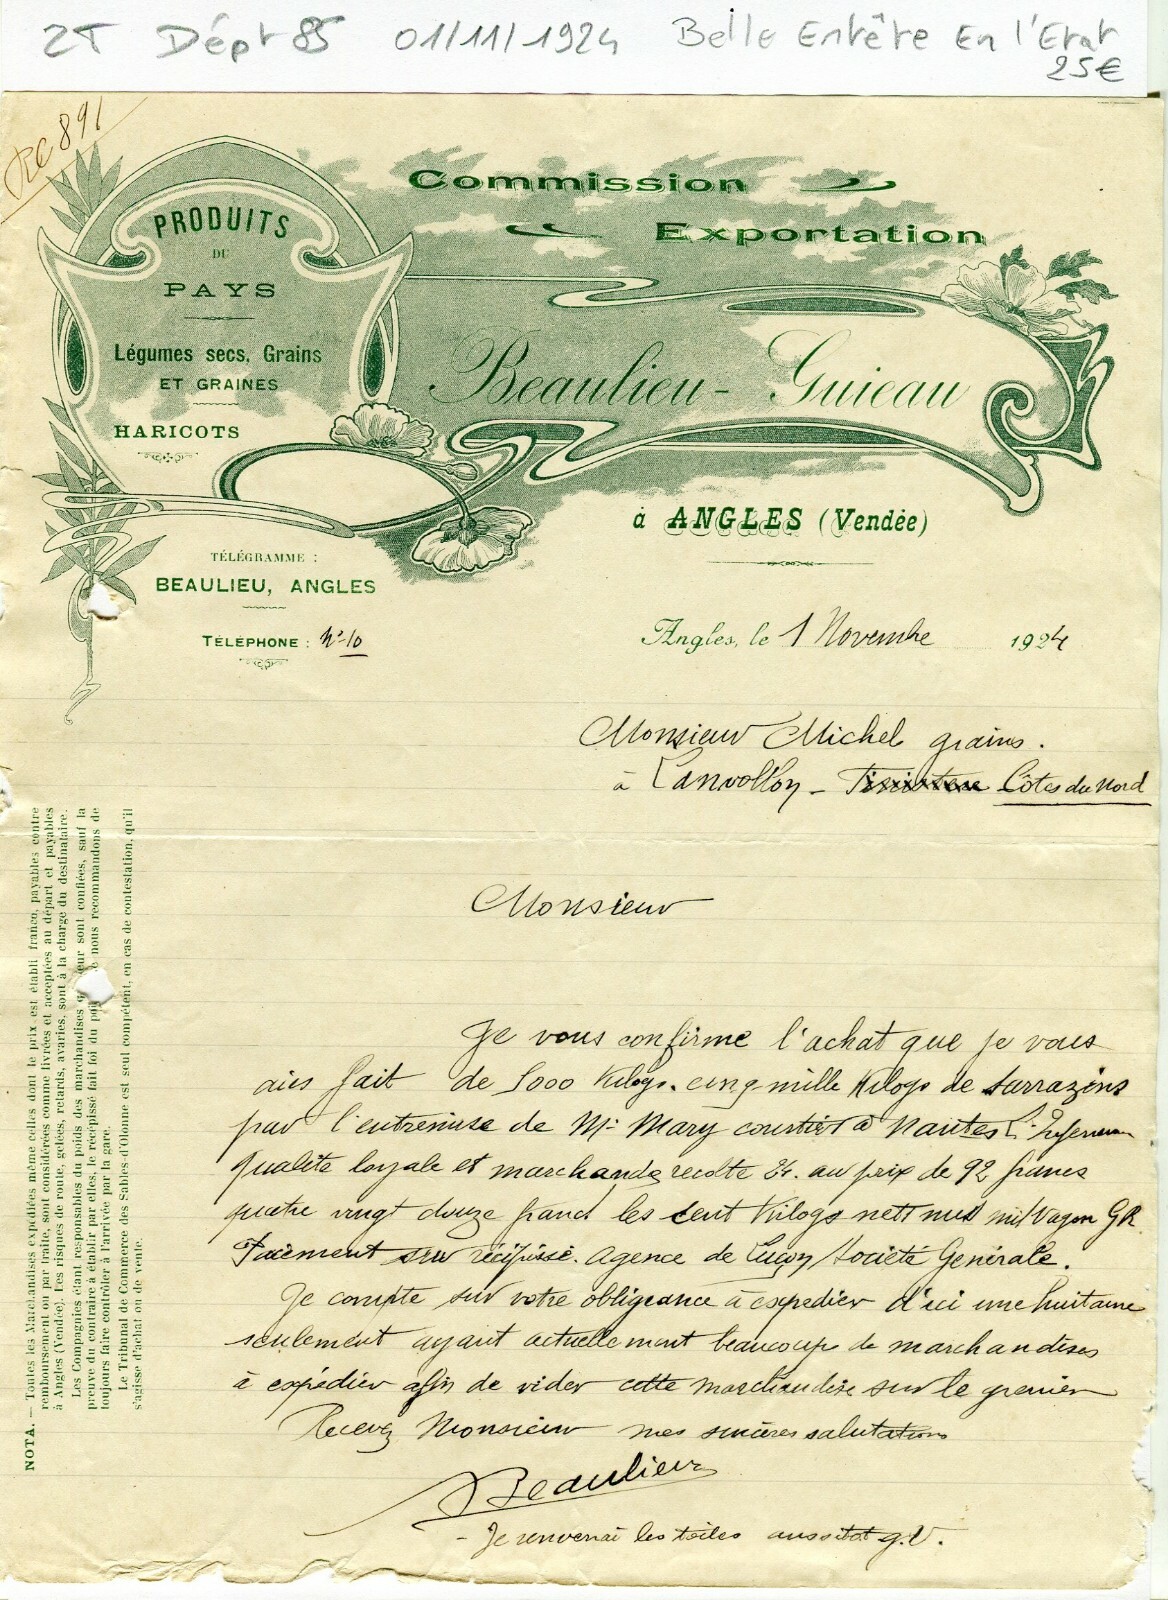 2T Dépt 85 01/11/1924 Belle Entête En l'Etat
25€
RC 891
Commission
Exportation
PRODUITS
DU
PAYS
Légumes secs, Grains
ET GRAINES
HARICOTS
Beaulieu-Guieau
à ANGLES (Vendée)
TÉLÉGRAMME :
BEAULIEU, ANGLES
TÉLÉPHONE : No 10
Angles, le 1 Novembre 1924
Monsieur Michel grains.
à Lanvollon - Finistère Côtes du Nord
Monsieur
Je vous confirme l'achat que je vous
ais fait de 5000 Kilogs. cinq mille Kilogs de sarrazins
par l'entremise de Mr Mary courtier à Nantes L. Inferieure
qualité loyale et marchande récolte 24. au prix de 92 francs
quatre vingt douze franc les cent Kilogs nett nus vagon GR
Paiement sur récipissé. agence de Luçon Société Genérale.
Je compte sur votre obligeance à expedier d'ici une huitaine
seulement ayant actuellement beaucoup de marchandises
à expédier afin de vider cette marchandise sur le grenier
Recevez Monsieur mes sincères salutations
Beaulieu
- Je renverrai les toiles aussitot g.V.
NOTA. — Toutes les Marchandises expédiées même celles dont le prix est établi franco, payables contre
remboursement ou par traite, sont considérées comme livrées et acceptées au départ et payables
à Angles (Vendée). Les risques de route, gelées, retards, avaries, sont à la charge du destinataire.
Les Compagnies étant responsables du poids des marchandises leur sont confiées, sauf la
preuve du contraire à établir par elles, le récépissé fait foi du nous recommandons de
toujours faire contrôler à l'arrivée par la gare.
Le Tribunal de Commerce des Sables-d'Olonne est seul compétent, en cas de contestation, qu'il
s'agisse d'achat ou de vente.